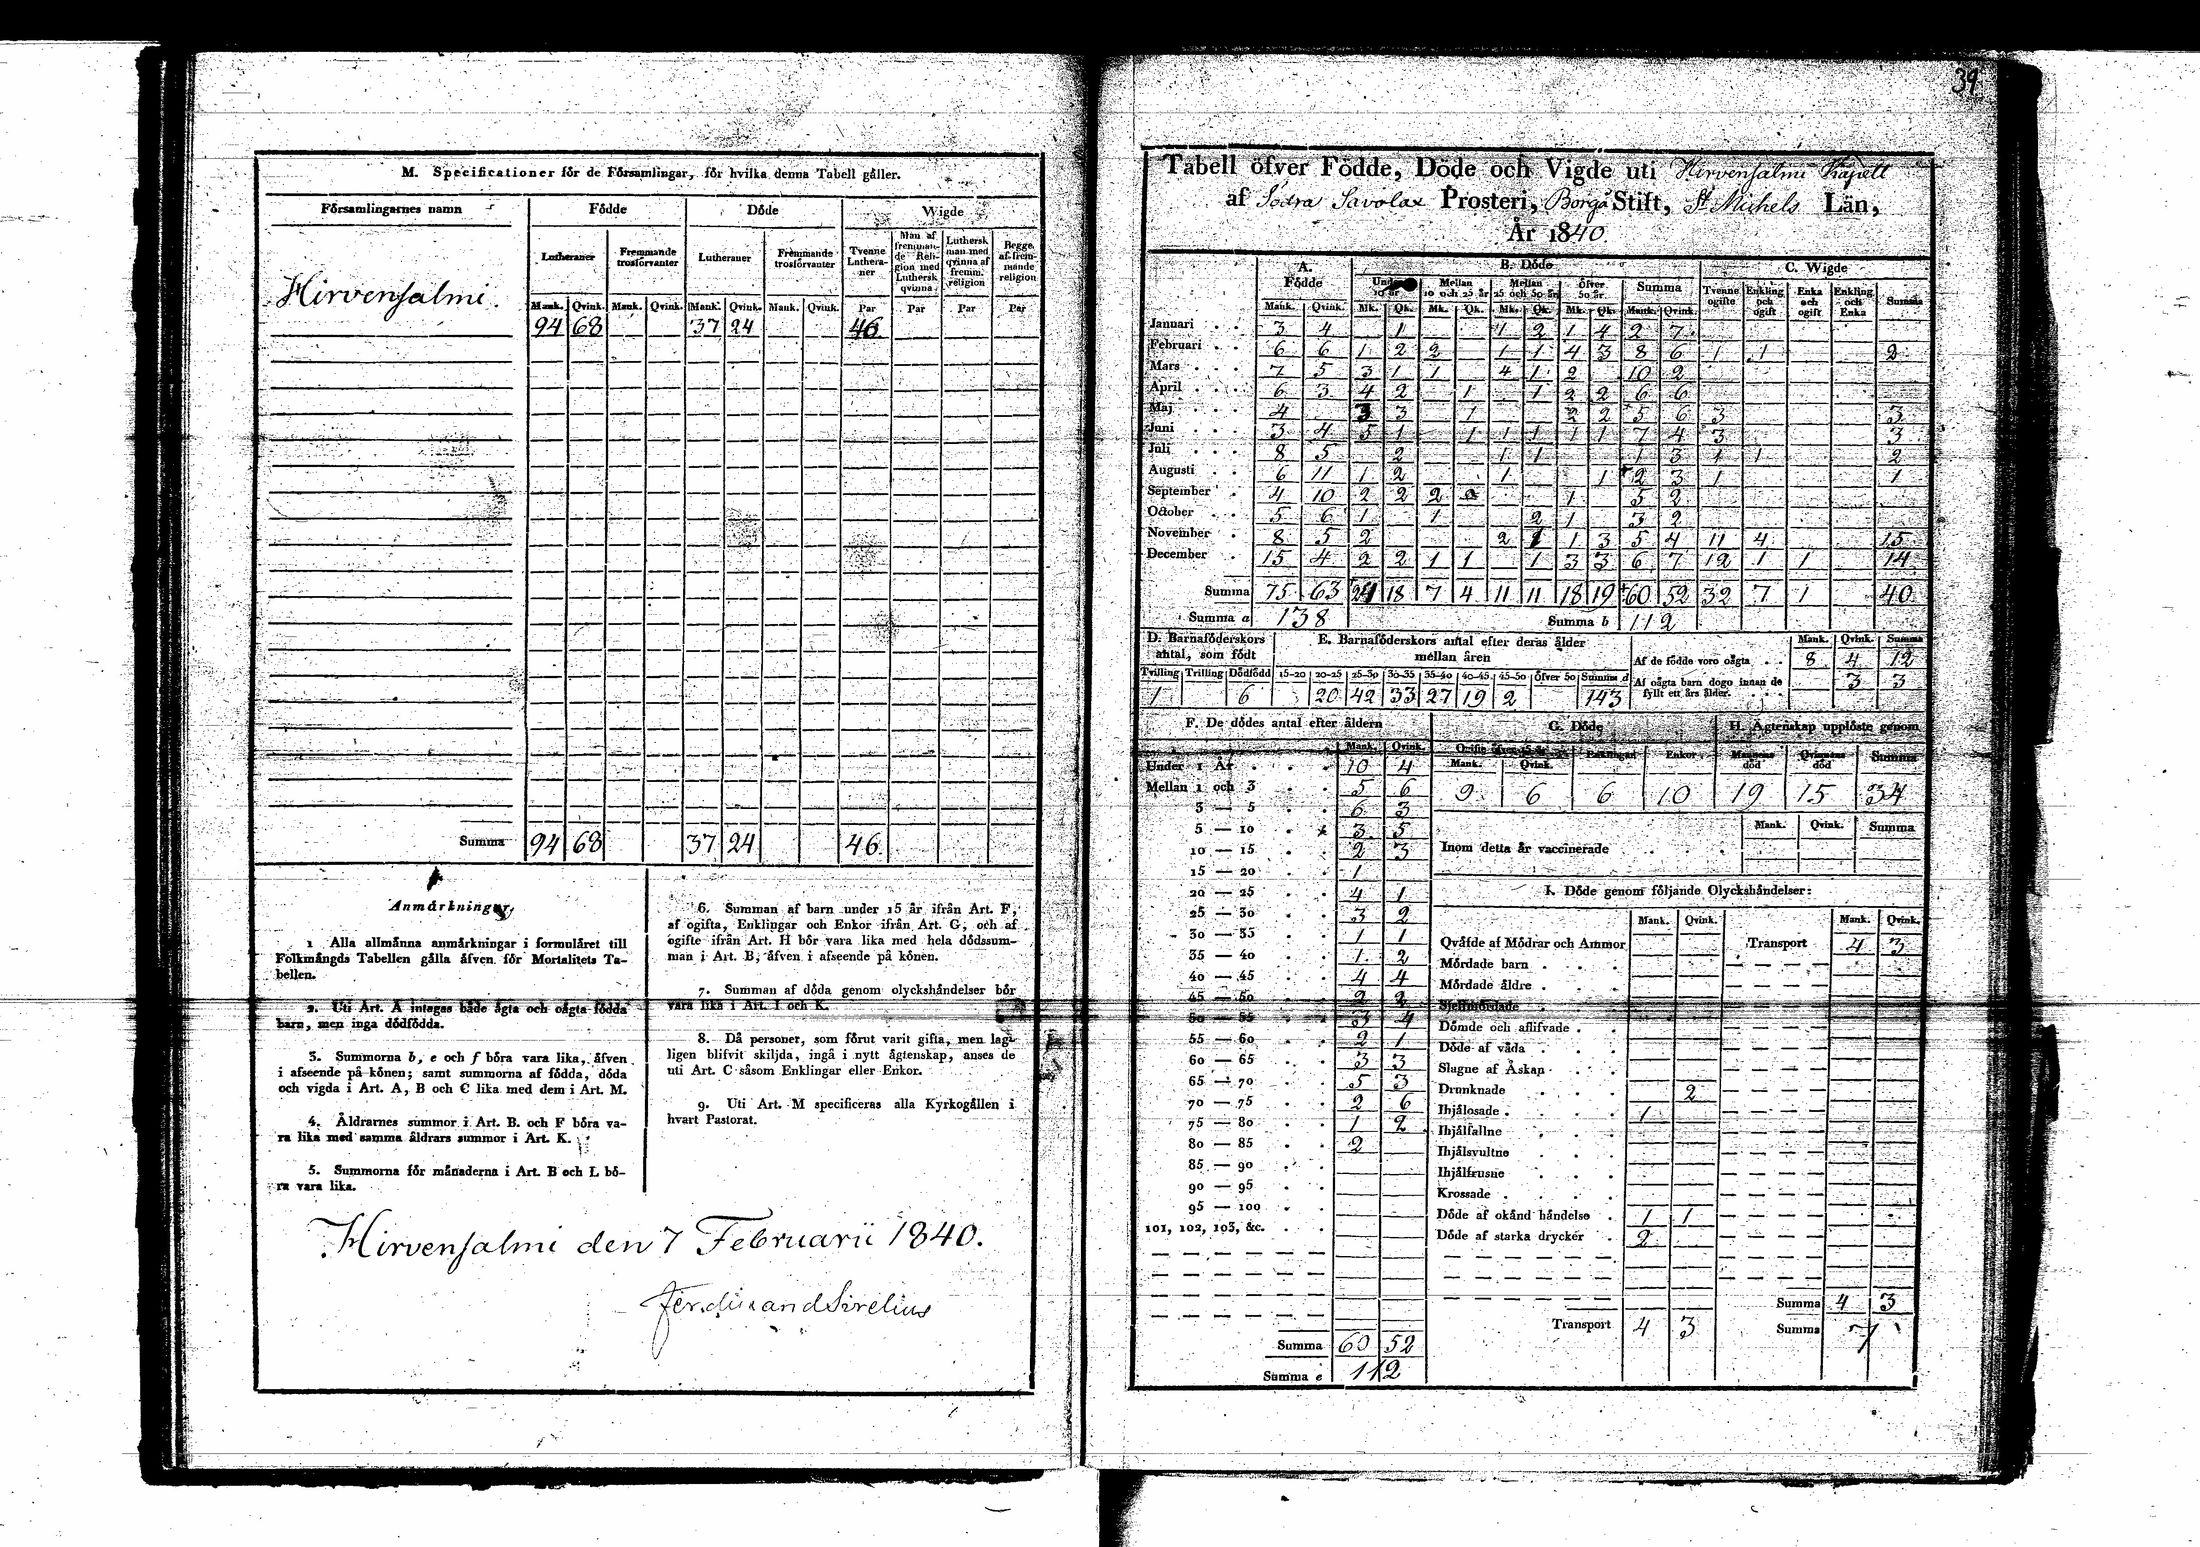 M. Specificationer för de Församlingar, för hvilka denna Tabell gäller.
Församlingarnes namn Födde Döde Wigde
Lutheraner Fremmande trosförvanter Lutheraner Fremmande trosförvanter Tvenne Lutheraner Man af fremmande Religion med Luthersk qvinna Luthersk man med qvinna af fremm. religion Begge af fremmande religion
Mank. Qvink. Mank. Qvink. Mank. Qvink. Mank. Qvink. Par Par Par Par
Hirvensalmi.
94 68 37 24 46
Summa 94 68 37 24 46.
Anmärkningar.
1 Alla allmänna anmärkningar i formuläret till
Folkmängds Tabellen gälla äfven för Mortalitets Ta-
bellen.
2. Uti Art. A intages både ägta och oägta födda
barn, men inga dödfödda.
3. Summorna b, e och f böra vara lika, äfven
i afseende på könen; samt summorna af födda, döda
och vigda i Art. A, B och C lika med dem i Art. M.
4. Åldrarnes summor i Art. B. och F böra va-
ra lika med samma åldrars summor i Art. K.
5. Summorna för månaderna i Art. B och L bö-
ra vara lika.
6. Summan af barn under 15 år ifrån Art. F,
af ogifta, Enklingar och Enkor ifrån Art. G, och af
ogifte ifrån Art. H bör vara lika med hela dödssum-
man i Art. B, äfven i afseende på könen.
7. Summan af döda genom olyckshändelser bör
vara lika i Art. I och K.
8. Då personer, som förut varit gifta, men lag-
ligen blifvit skiljda, ingå i nytt ägtenskap, anses de
uti Art. C såsom Enklingar eller Enkor.
9. Uti Art. M specificeras alla Kyrkogällen i
hvart Pastorat.
Hirvensalmi den 7 Februarii 1840.
Ferdinand Sirelius
39.
Tabell öfver Födde, Döde och Vigde uti Hirvensalmi Kapell
af Södra Savolax Prosteri, Borgå Stift, St Michels Län,
År 1840
A. Födde B. Döde C. Wigde
Under 10 år Mellan 10 och 25 år Mellan 25 och 50 år Öfver 50 år. Summa Tvenne ogifte Enkling och ogift Enka och ogift Enkling och Enka Summa
Mank. Qvink. Mk. Qk. Mk. Qk. Mk. Qk. Mk. Qk. Mank. Qvink.
Januari 3 4 1 1 2 1 4 2 7
Februari 6 6 1 2 2 1 1 4 3 8 6 1 1 2
Mars 7 5 3 1 1 4 1 2 10 2
April 6 3 4 2 1 1 2 2 6 6
Maj 4 3 3 1 2 2 5 6 3 3
Juni 3 4 5 1 1 1 1 1 1 7 4 3 3
Juli 8 5 2 1 1 1 3 1 1 2
Augusti 6 11 1 2 1 1 2 3 1 1
September 4 10 2 2 2 1 5 2
October 5 6 1 1 2 1 3 2
November 8 5 2 2 1 1 3 5 4 11 4 15
December 15 4 2 2 1 1 1 3 3 6 7 12 1 1 14
Summa 75 63 24 18 7 4 11 11 18 19 60 52 32 7 1 40
Summa a 138 Summa b 112
D. Barnaföderskors antal, som födt
Tvilling Trilling Dödfödd
1 6
E. Barnaföderskors antal efter deras ålder
mellan åren
15-20 20-25 25-30 30-35 35-40 40-45 45-50 Öfver 50 Summa d
20 42 33 27 19 2 143
Mank. Qvink. Summa
Af de födde voro oägta 8 4 12
Af oägta barn dogo innan de
fyllt ett års ålder. 3 3
F. De dödes antal efter åldern
Mank. Qvink.
Under 1 År 10 4
Mellan 1 och 3 5 6
3 — 5 6 3
5 — 10 3 5
10 — 15 2 3
15 — 20 1
20 — 25 4 1
25 — 30 3 2
30 — 35 1 1
35 — 40 1 2
40 — 45 4 4
45 — 50 2 2
50 — 55 3 4
55 — 60 2 1
60 — 65 3 3
65 — 70 5 3
70 — 75 2 6
75 — 80 1 2
80 — 85 2
85 — 90
90 — 95
95 — 100
101, 102, 103, &c.
Summa 60 52
Summa e 112
G. Döde H. Ägtenskap upplöste genom
Ogifte öfver 15 år Enklingar Enkor Mannens död Qvinnans död Summa
Mank. Qvink.
9 6 6 10 19 15 34
Mank. Qvink. Summa
Inom detta år vaccinerade
I. Döde genom följande Olyckshändelser:
Mank. Qvink. Mank. Qvink.
Qväfde af Mödrar och Ammor Transport 4 3
Mördade barn
Mördade äldre
Sjelfmördade
Dömde och aflifvade
Döde af våda
Slagne af Åskan
Drunknade 2
Ihjälosade 1
Ihjälfallne
Ihjälsvultne
Ihjälfrusne
Krossade
Döde af okänd händelse 1 1
Döde af starka drycker 2
Summa 4 3
Transport 4 3 Summa 7